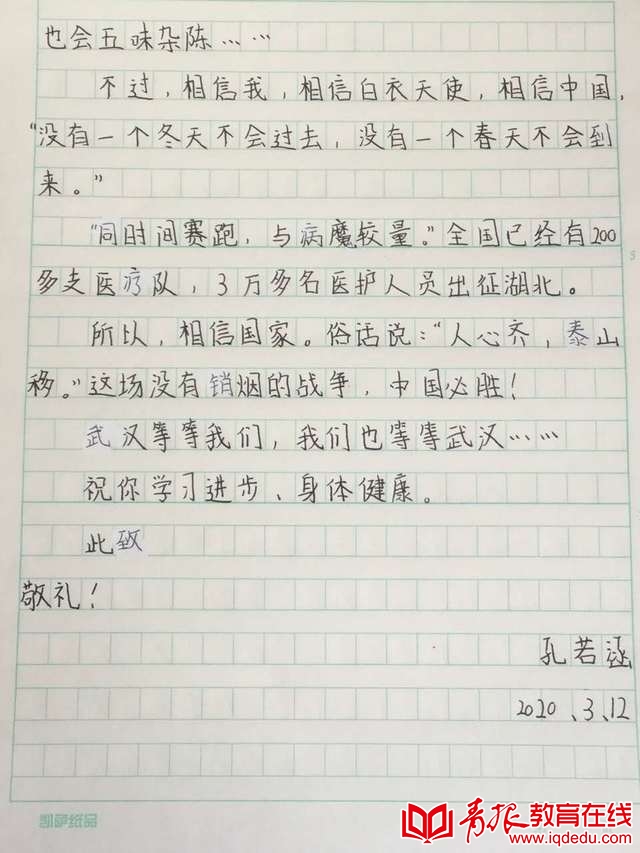 也会五味杂陈……
不过，相信我，相信白衣天使，相信中国，
“没有一个冬天不会过去，没有一个春天不会到
来。”
“同时间赛跑，与病魔较量。”全国已经有200
多支医疗队，3万多名医护人员出征湖北。
所以，相信国家。俗话说：“人心齐，泰山
移。”这场没有销烟的战争，中国必胜！
武汉等等我们，我们也等等武汉……
祝你学习进步、身体健康。
此致
敬礼！
孔若涵
2020、3、12
凯萨纸品
5
青报教育在线
www.iqdedu.com